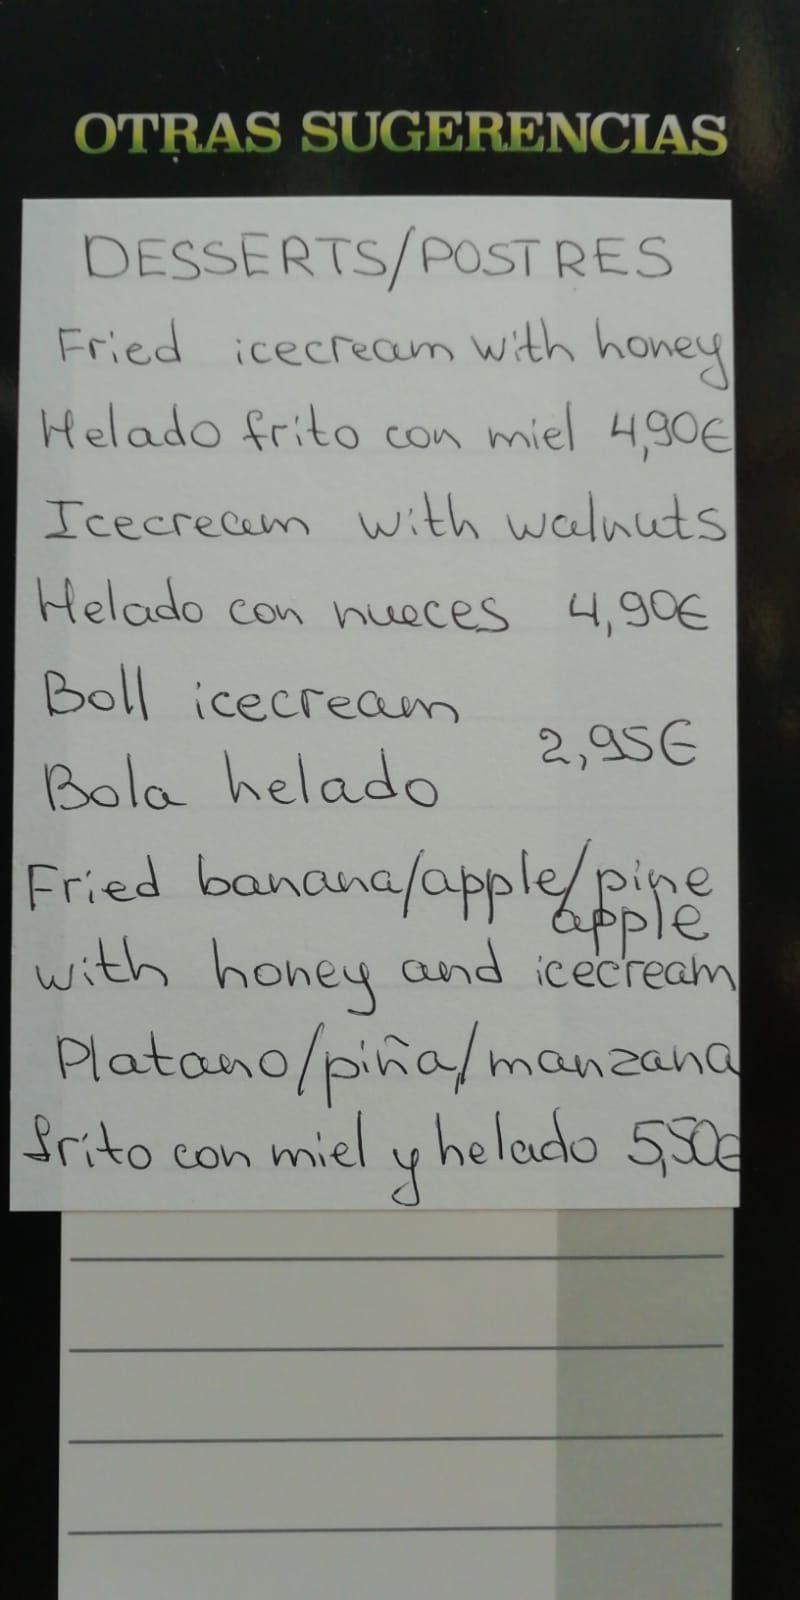 OTRAS SUGERENCIAS
DESSERTS/POSTRES
Fried icecream with honey
Helado frito con miel 4,90€
Icecream with walnuts
Helado con nueces 4,90€
Boll icecream
2,95€
Bola helado
Fried banana/apple/pine
apple
with honey and icecream
Platano/piña/manzana
frito con miel y helado 5,50€